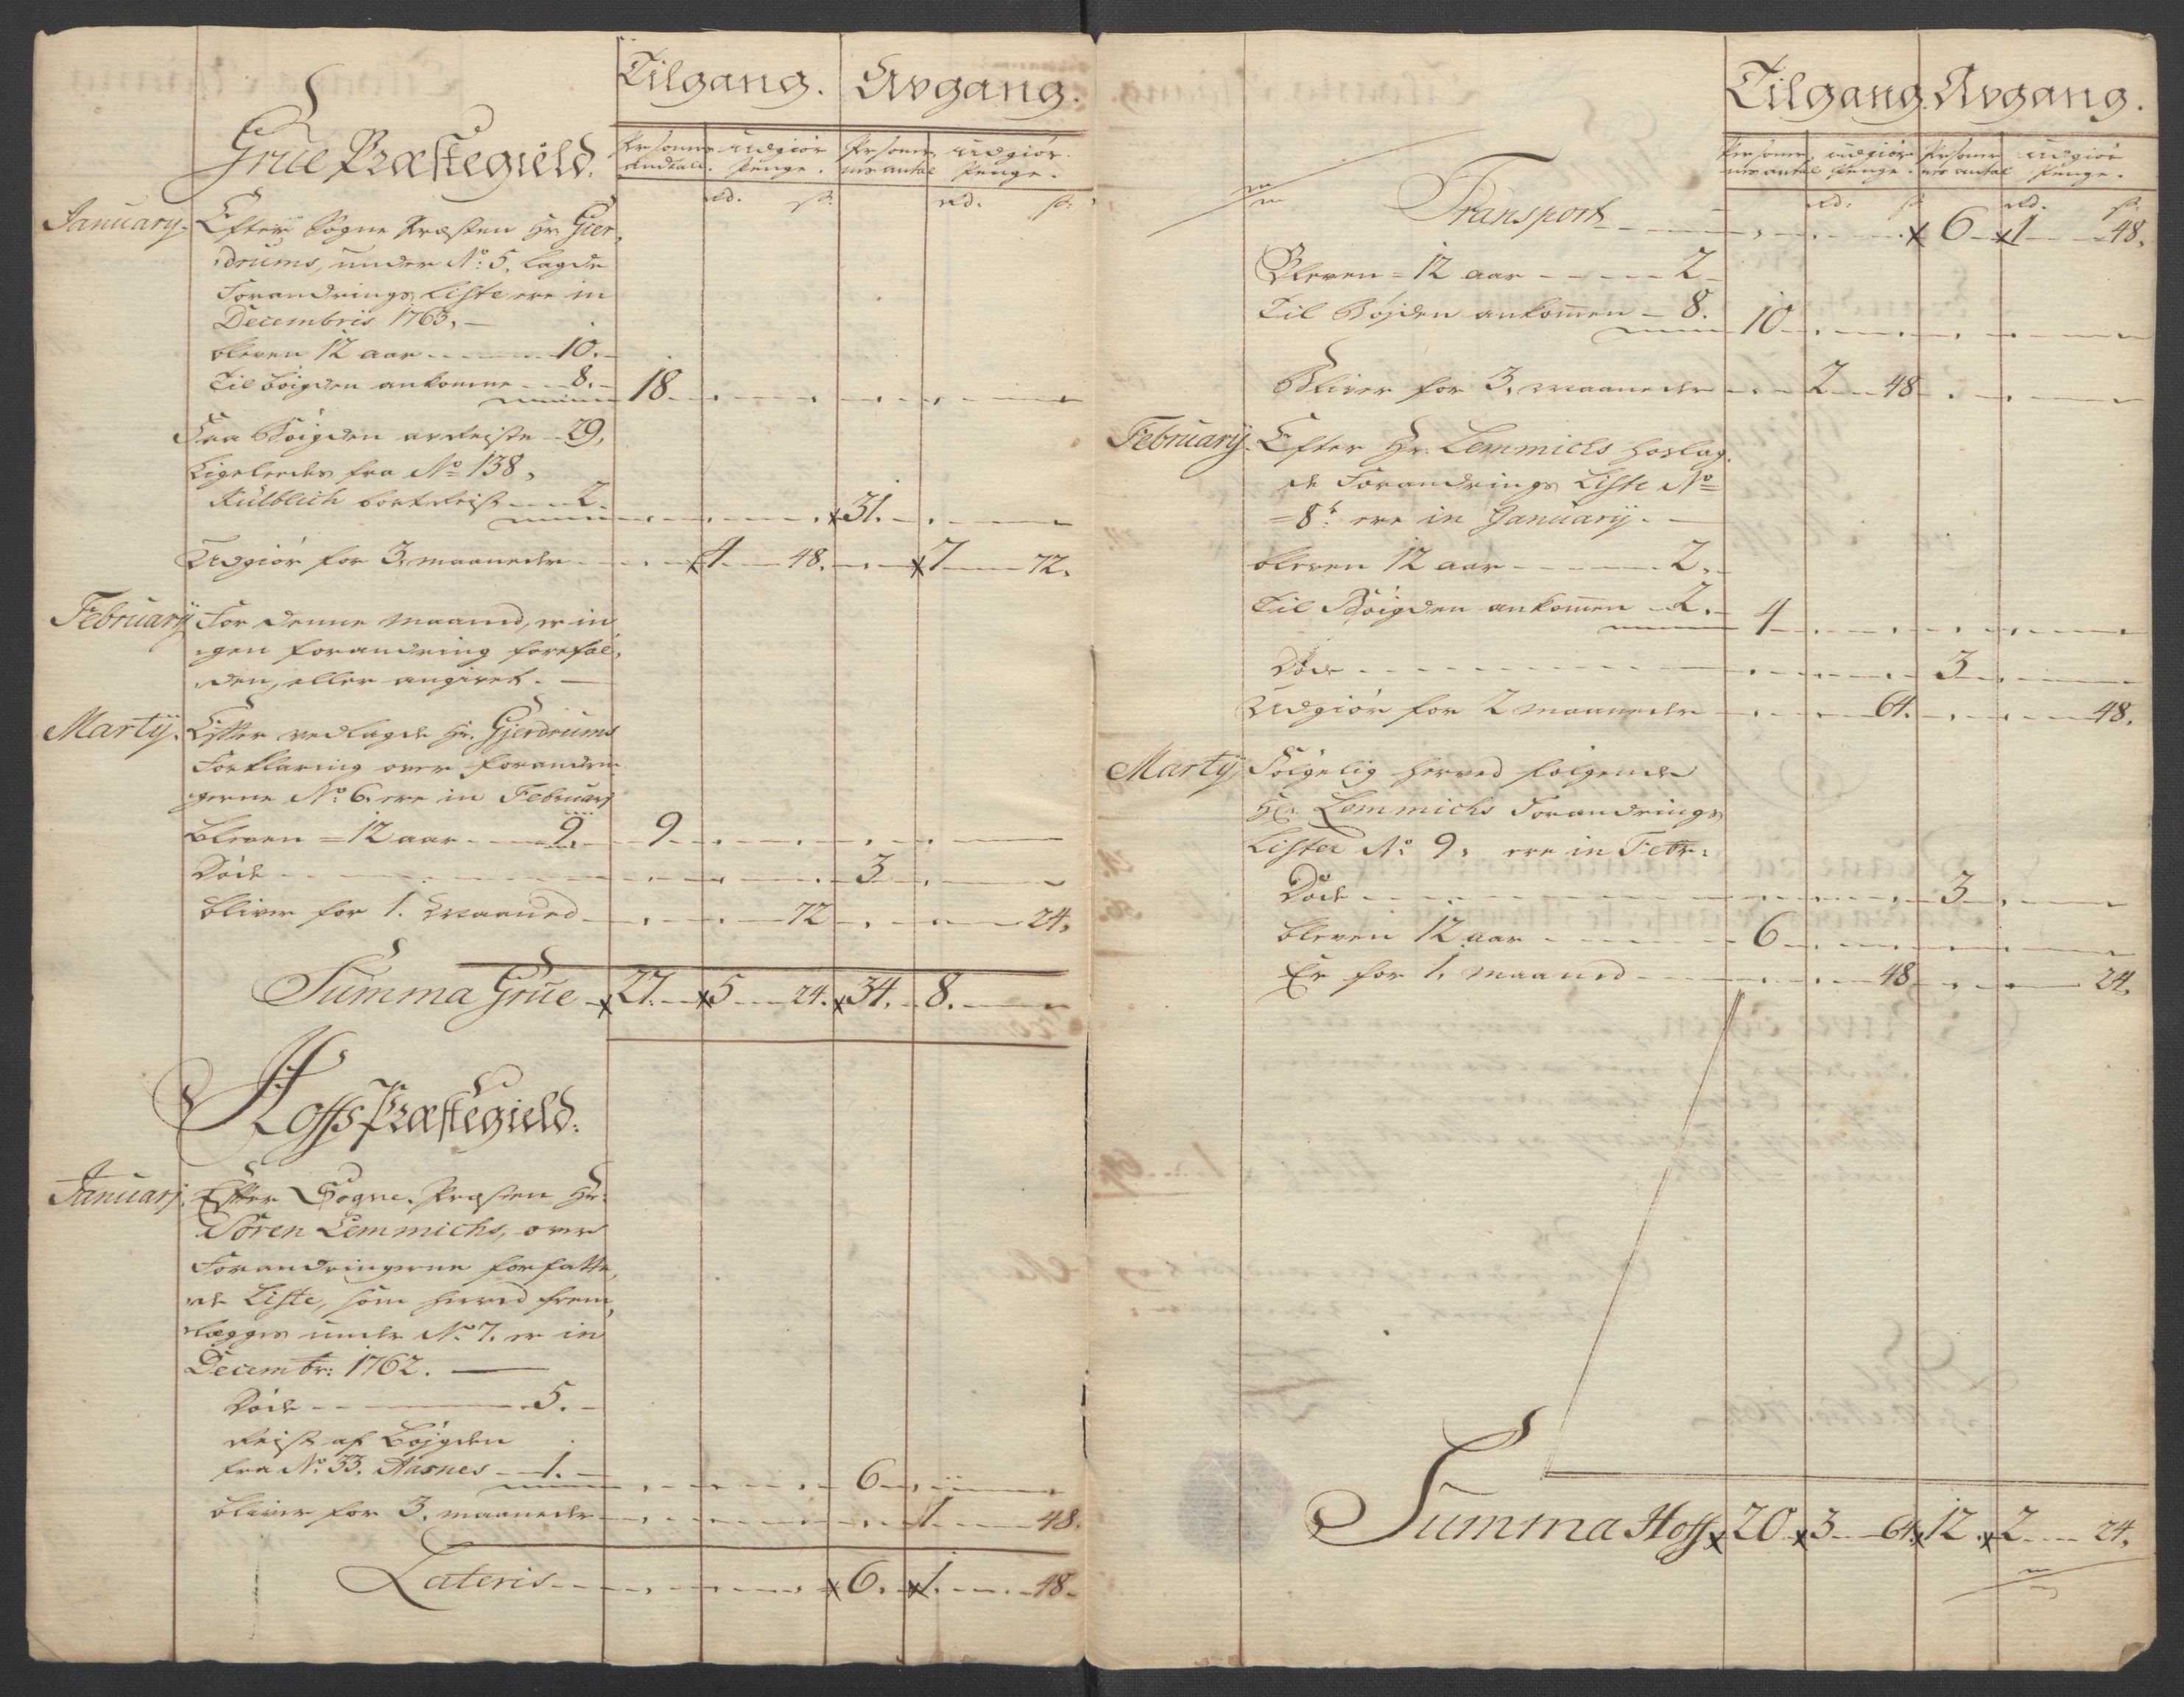 Tilgang. Avgang.
Grue Præstegield.
Personernes Andtall. Udgiør Penge. Personernes antal Udgiør Penge.
rd. s: rd. s:
January. Efter Sogne Præsten Hr. Gier,
drums, under No: 5, lagde
Forandrings Liste ere in
Decembris 1763, —
bleven 12 aar 10.
Til bøigden ankomne 8. 18
Fra Bøigden avreiste 29,
Ligeleedes fra No 138,
Külblich bortreist 2. 31.
Udgiør for 3, maaneder 4 48. 7 72.
Februarij For denne Maaned, er in
gen forandring forefal,
den, eller angivet. —
Martij. Efter vedlagde Hr. Gjerdrums
Forklaring over forandrin
gerne No: 6. ere in Februarj
bleven = 12 aar 9. 9
Døde 3
bliver for 1. Maaned 72 24.
Summa Grue 27. 5 24. 34. 8.
Hoffs Præstegield.
Januarj. Efter Sogne-Præsten Hr:
Søren Lemmichs, over
Forandringerne forfatte,
de Liste, som herved frem,
lægges under No. 7. er in
Decembr: 1762. —
Døde 5.
Reist af Bøjgden
fra No. 33. Aasnes 1. 6
bliver for 3, maaneder 1. 48.
Lateris 6. 1. 48
Tilgang. Avgang.
Personernes antal Udgiør Penge. Personernes antal Udgiør Penge.
rd: s rd. s:
Transport 6 1 48.
Bleven = 12 aar 2
Til Bøjden ankommen 8. 10
Bliver for 3, maaneder 2 48
Februarij. Efter Hr. Lemmichs hoslag
de Forandrings Liste No
= 8. ere in Januarij. —
bleven 12 aar 2.
Til Bøigden ankommen 2. 4
Døde 3
Udgiør for 2 maaneder 64. 48.
Martij Følgelig herved følgende
Hr. Lemmichs Forandrings
Lister No: 9, ere in Febr:
Døde 3
bleven 12 aar 6
Er for 1. maaned 48 24.
Summa Hoff 20 3 64. 12. 2 24.